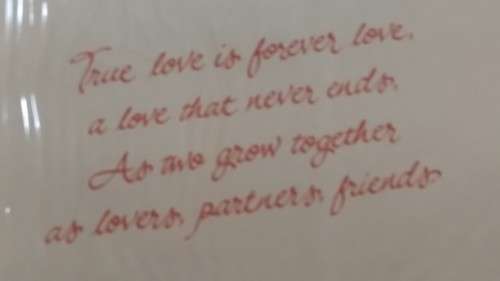 True love is forever love,
a love that never ends,
As two grow together
as lovers, partners, friends.